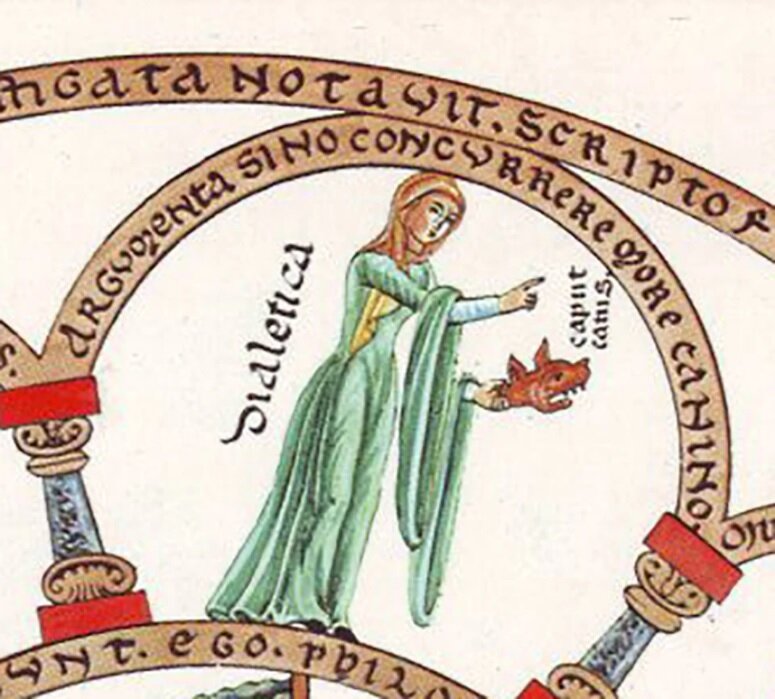 NOTAVIT. SCRIPTO
ARGUMENTA SINO CONCURRERE MORE CANINO.
Dialetica
caput
canis.
UNT. EGO. PHILO